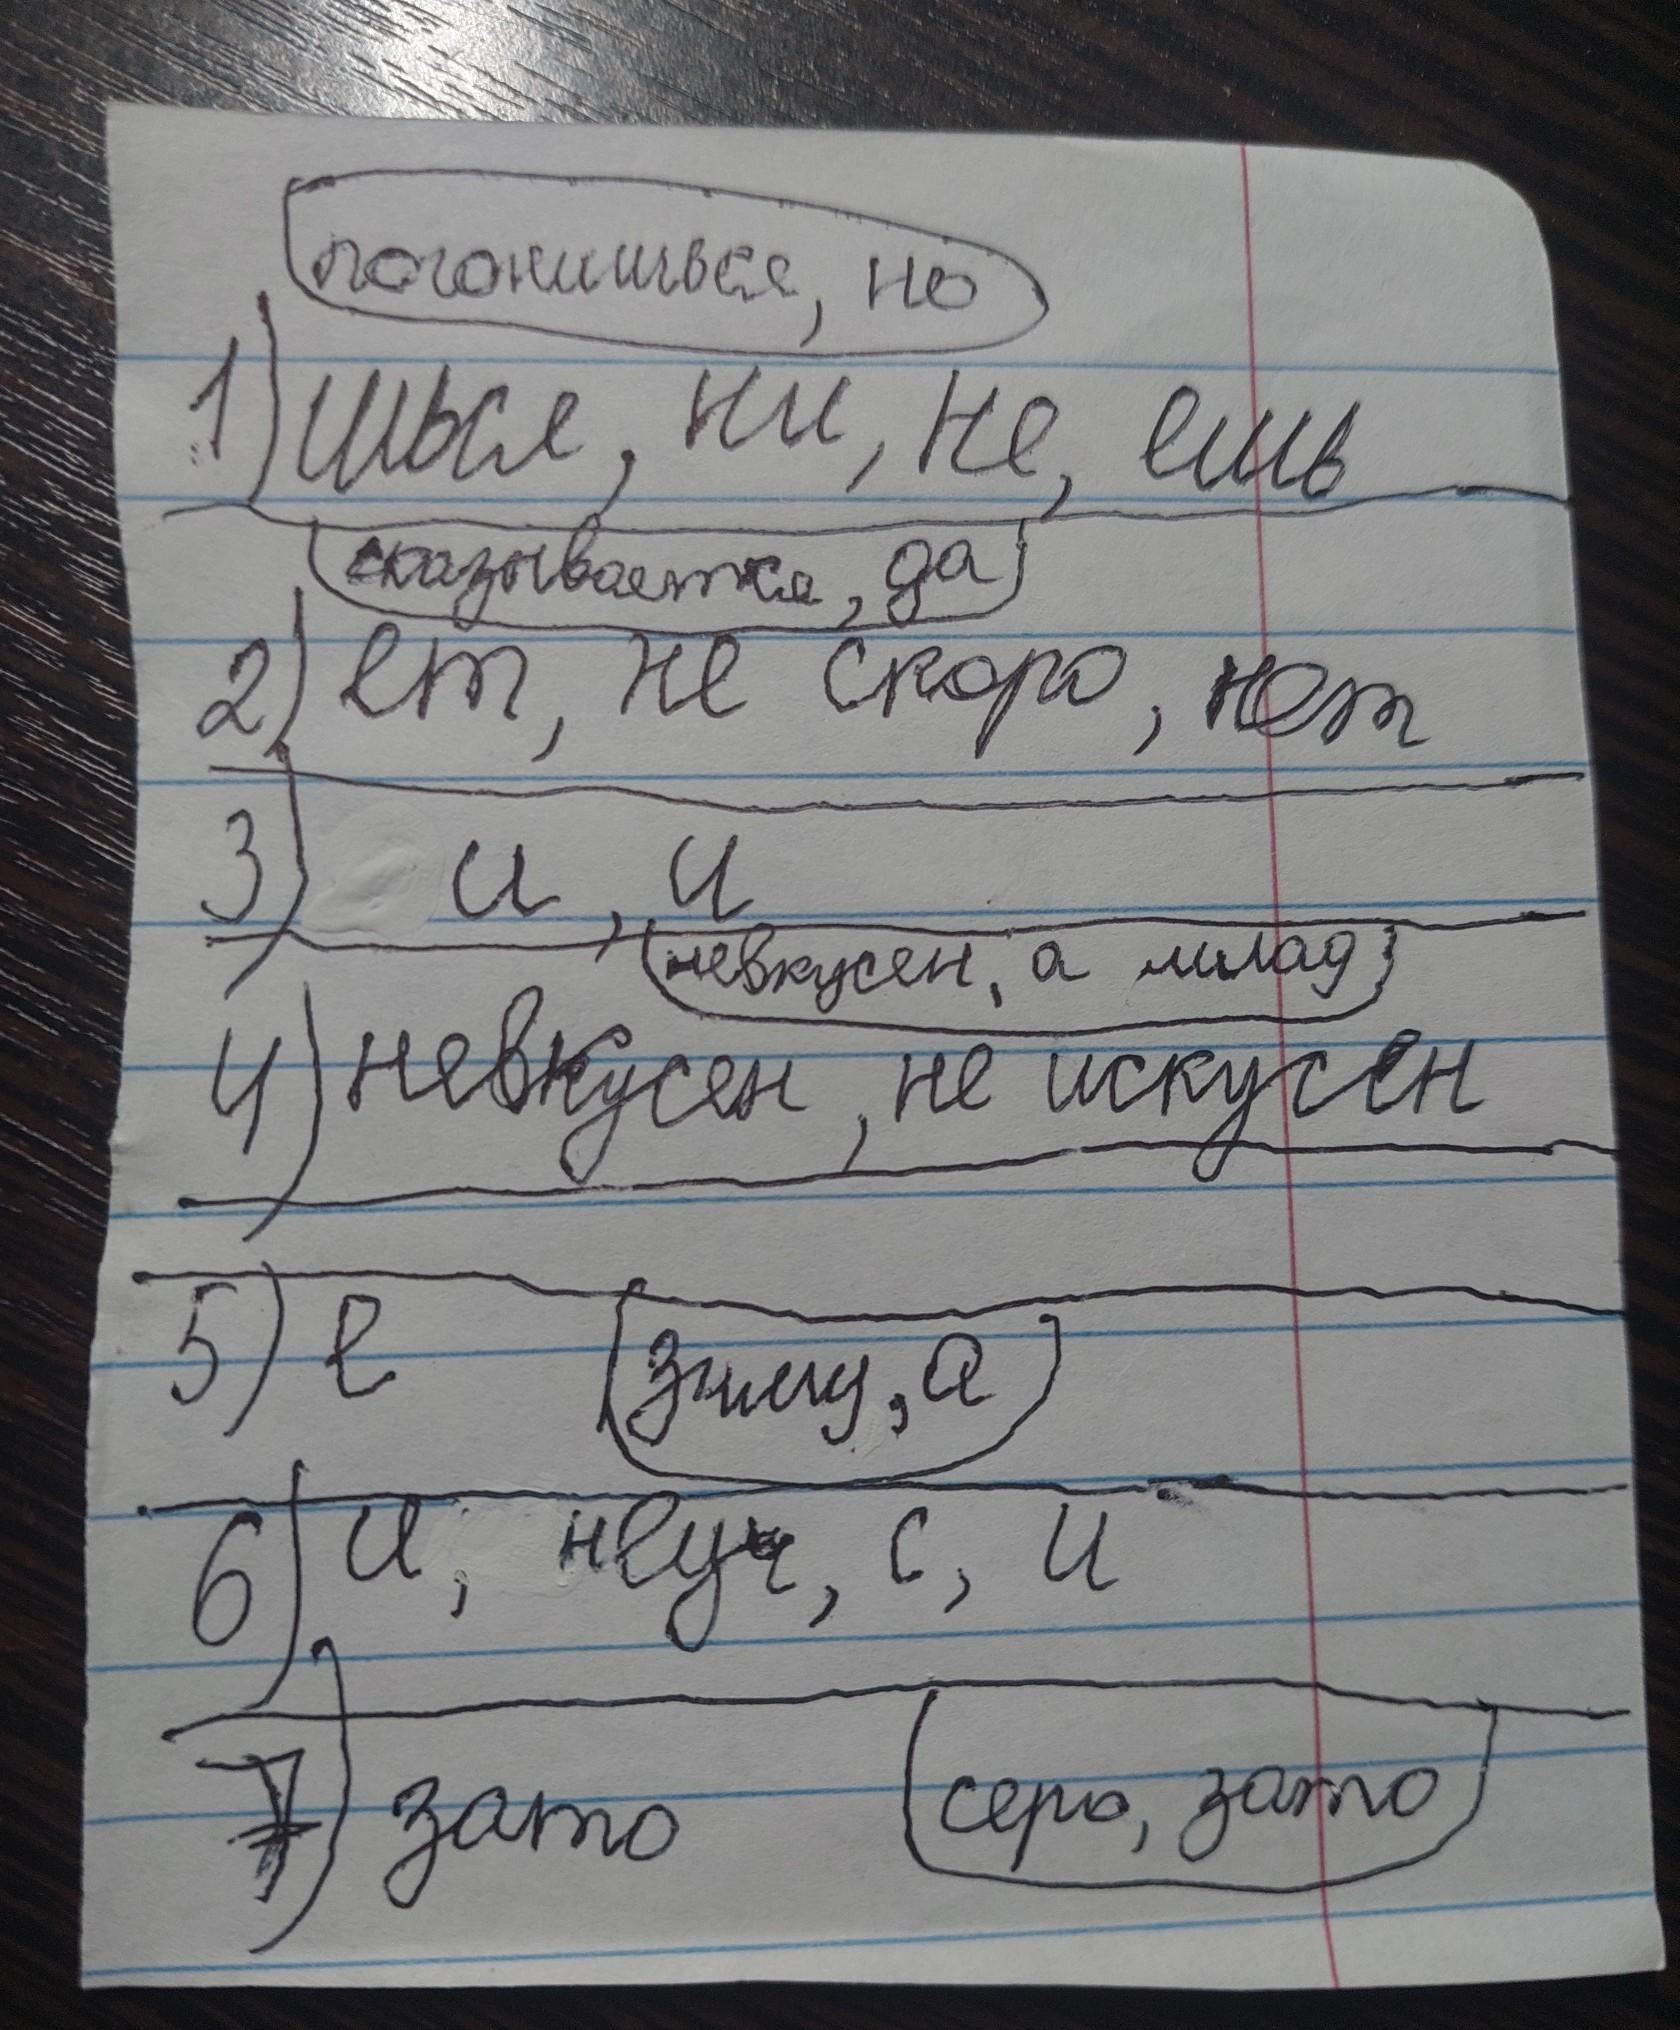 погонишься, но
1) шься, ни, не, ешь
сказывается, да
2) ет, не скоро, нет
3) и, и
невкусен, а млад
4) невкусен, не искусен
5) е зиму, а
6) и, неуч, с, и
7) зато серо, зато